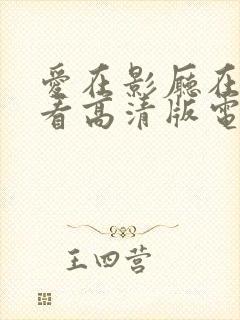 愛在影廳在
看高清版電
王四营